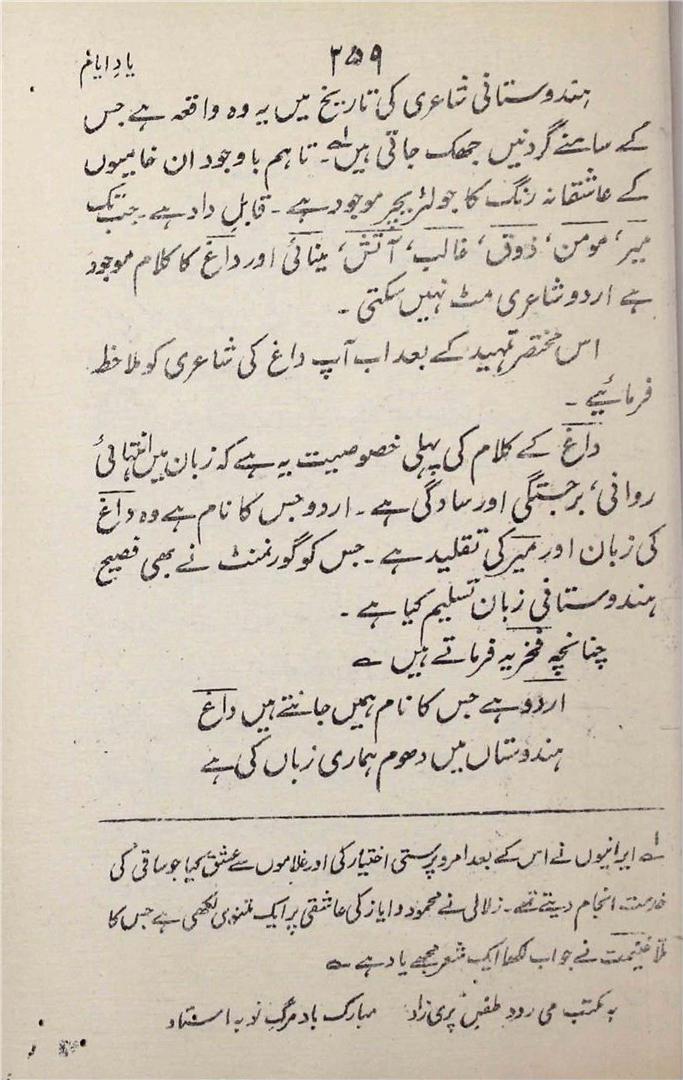 یادِ ایام
۲۵۹
ہندوستانی شاعری کی تاریخ میں یہ وہ واقعہ ہے جس
کے سامنے گردنیں جھک جاتی ہیں۱؎۔ تاہم باوجود ان خامیوں
کے عاشقانہ رنگ کا جو لٹریچر موجود ہے۔ قابلِ داد ہے۔ جب تک
میر، مومن، ذوق، غالب، آتش، مینائی اور داغ کا کلام موجود
ہے اردو شاعری مٹ نہیں سکتی۔
اس مختصر تمہید کے بعد اب آپ داغ کی شاعری کو ملاحظہ
فرمائیے۔
داغ کے کلام کی پہلی خصوصیت یہ ہے کہ زبان میں انتہائی
روانی، برجستگی اور سادگی ہے۔ اردو جس کا نام ہے وہ داغ
کی زبان اور میر کی تقلید ہے۔ جس کو گورنمنٹ نے بھی فصیح
ہندوستانی زبان تسلیم کیا ہے۔
چنانچہ فخریہ فرماتے ہیں ؎
اردو ہے جس کا نام ہمیں جانتے ہیں داغ
ہندوستاں میں دھوم ہماری زباں کی ہے
۱؎ ایرانیوں نے اس کے بعد امرد پرستی اختیار کی اور غلاموں سے عشق کیا جو ساقی کی
خدمت انجام دیتے تھے۔ زلالی نے محمود و ایاز کی عاشقی پر ایک مثنوی لکھی ہے جس کا
ملا غنیمت نے جواب لکھا ایک شعر مجھے یاد ہے ؎
بہ مکتب می رود طفلِ پری زاد مبارک باد مرگِ نو بہ استاد